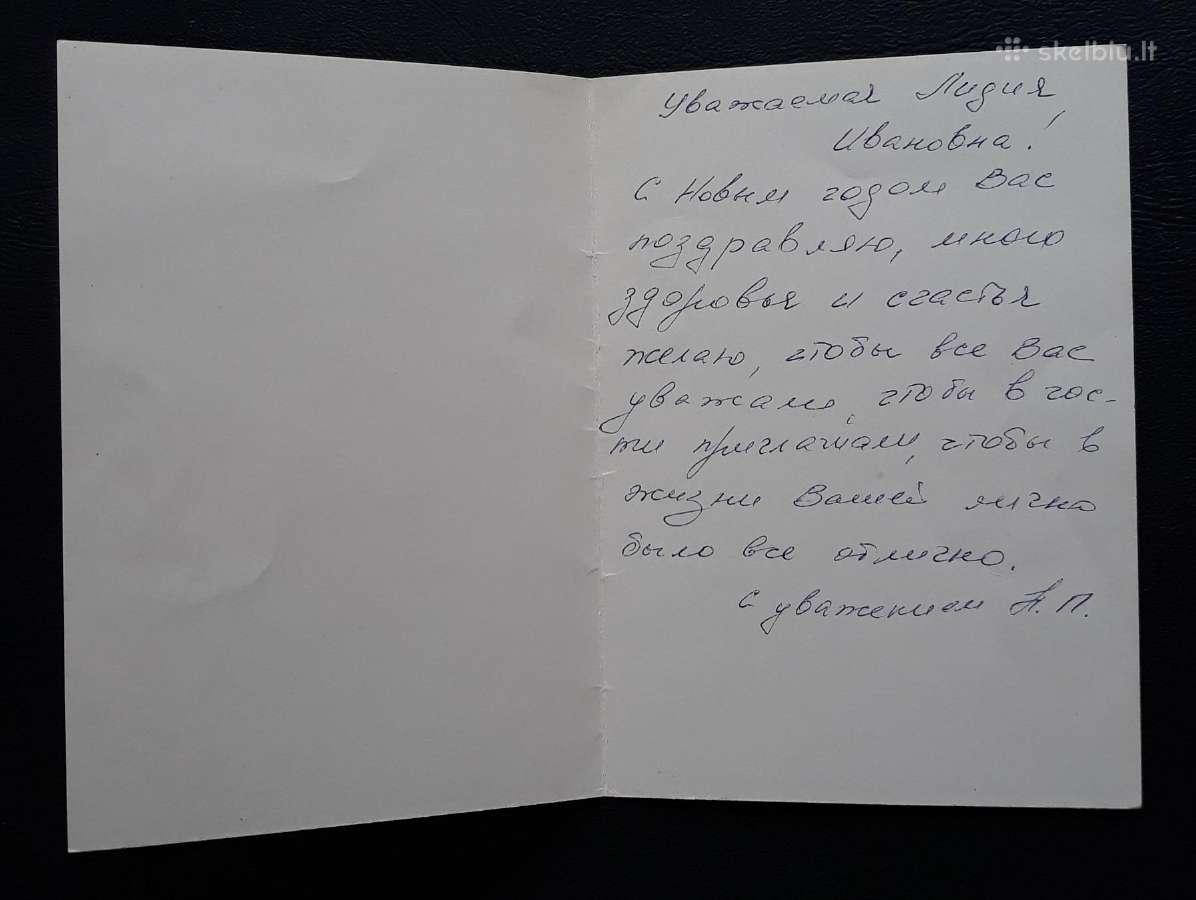 skelbiu.lt
Уважаемая Лидия
Ивановна!
С Новым годом Вас
поздравляю, много
здоровья и счастья
желаю, чтобы все Вас
уважали, чтобы в гос-
ти приглашали, чтобы в
жизни Вашей лично
было все отлично.
С уважением А. П.